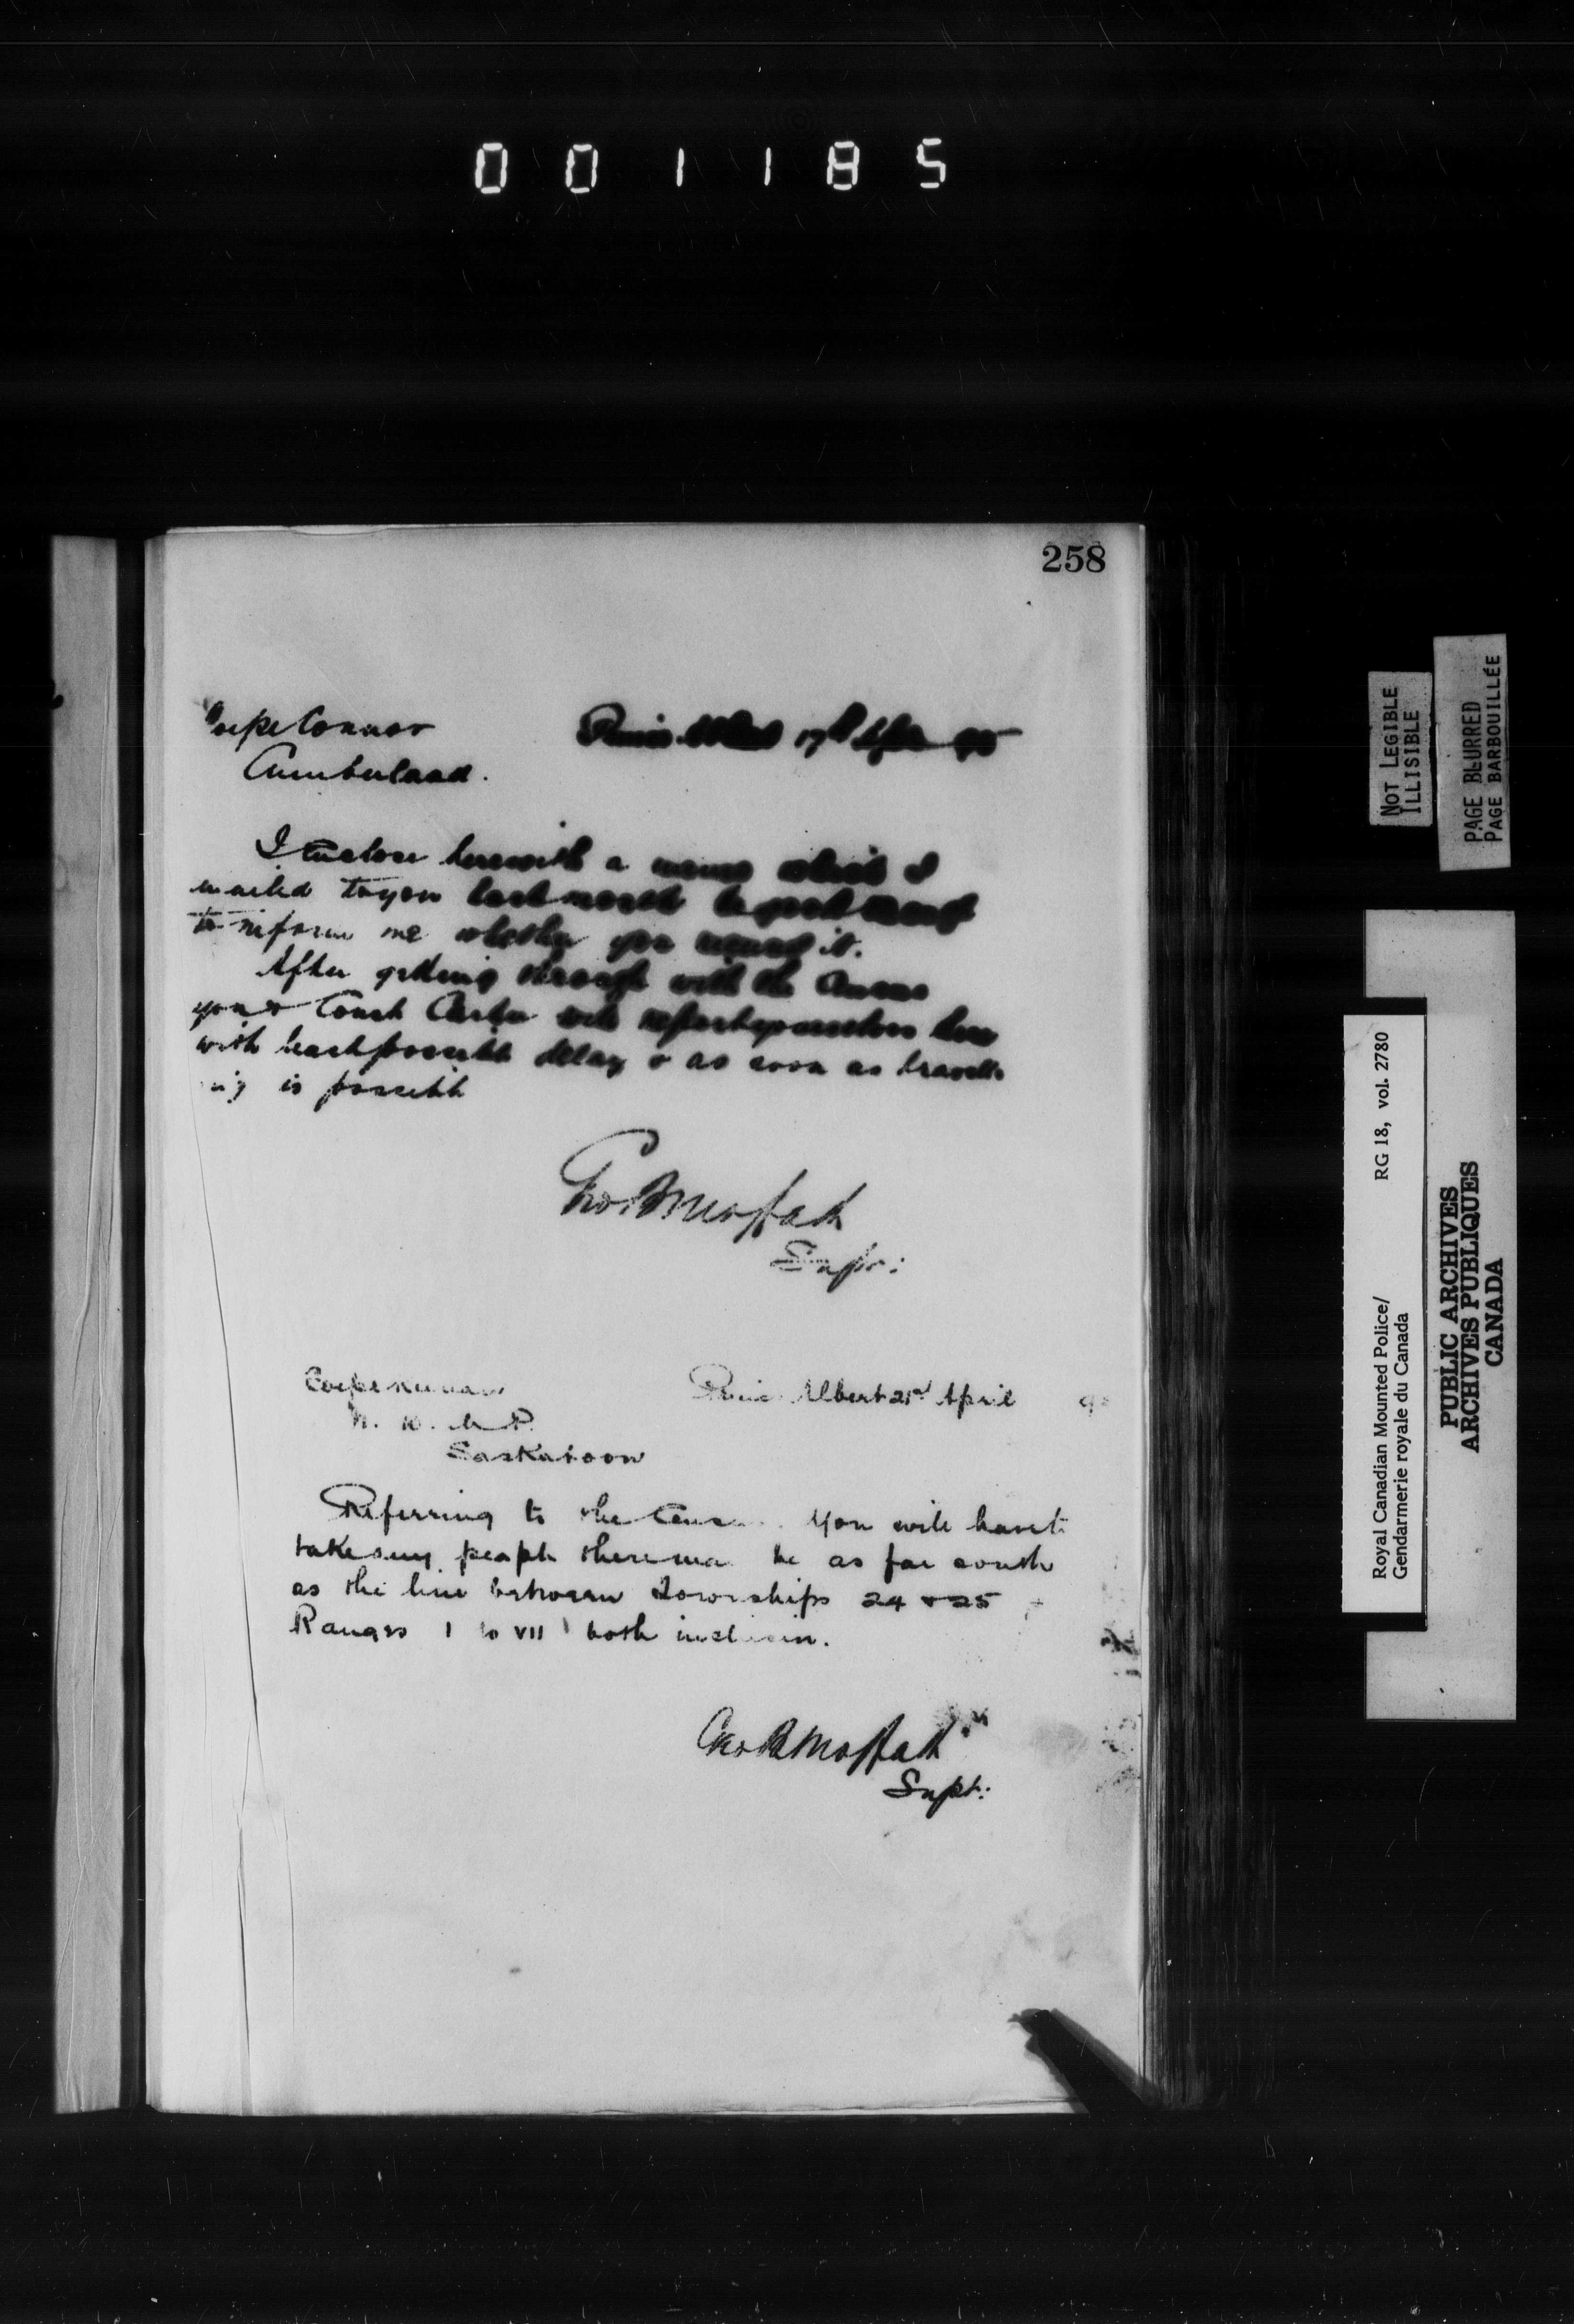 001185
258
Corpl Connor
Prince Albert 17th April 95
Cumberland.
I enclose herewith a memo which I
mailed to you last month be good enough
to inform me whether you received it.
After getting through with the Census
you & Const Carter will report yourselves here
with least possible delay & as soon as travell
ing is possible
Geo B Moffatt
Supt:
Corpl
Prince Albert 21st April 9
N. W. M. P.
Saskatoon
Referring to the Cens You will have to
take any people there ma be as far south
as the line between Townships 24 & 25
Ranges I to VII both inclusive.
Geo B Moffatt
Supt:
NOT LEGIBLE
ILLISIBLE
PAGE BLURRED
PAGE BARBOUILLÉE
Royal Canadian Mounted Police/
Gendarmerie royale du Canada
RG 18, vol. 2780
PUBLIC ARCHIVES
ARCHIVES PUBLIQUES
CANADA